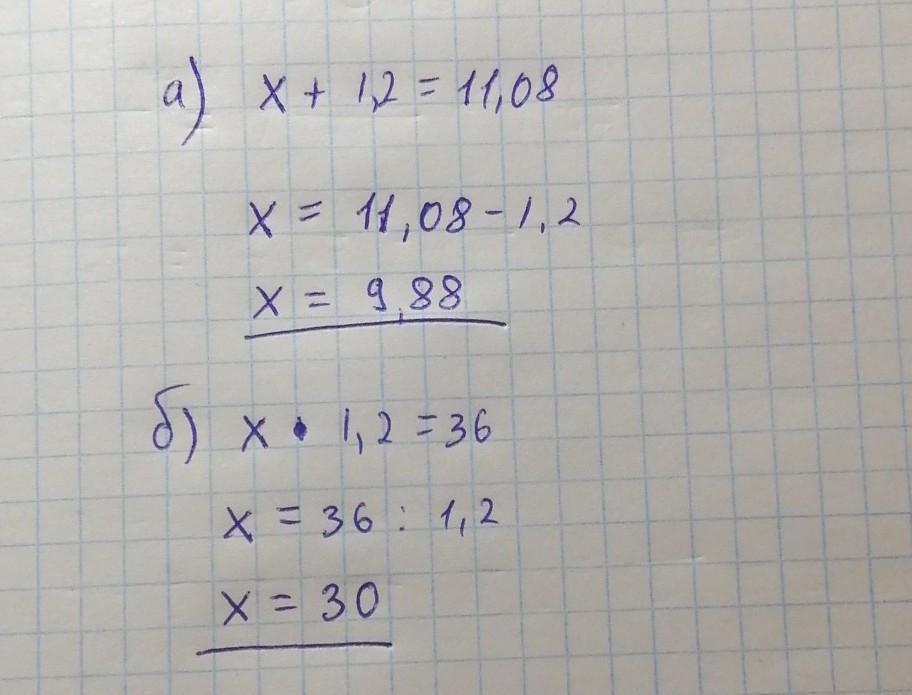 а) x + 1,2 = 11,08
x = 11,08 - 1,2
x = 9,88
б) x • 1,2 = 36
x = 36 : 1,2
x = 30